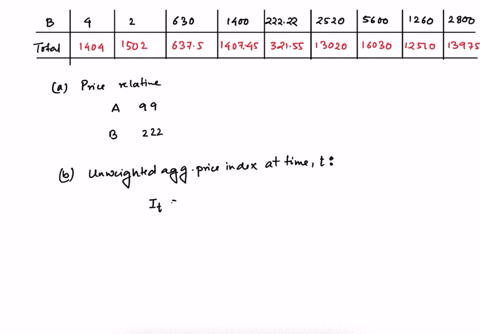 B 4 2 630 1400 222.22 2520 5600 1260 2800
Total 1404 1502 637.5 1407.45 321.55 13020 16030 12510 13975
(a) Price relative
A 99
B 222
(b) Unweighted agg. price index at time, t:
It =